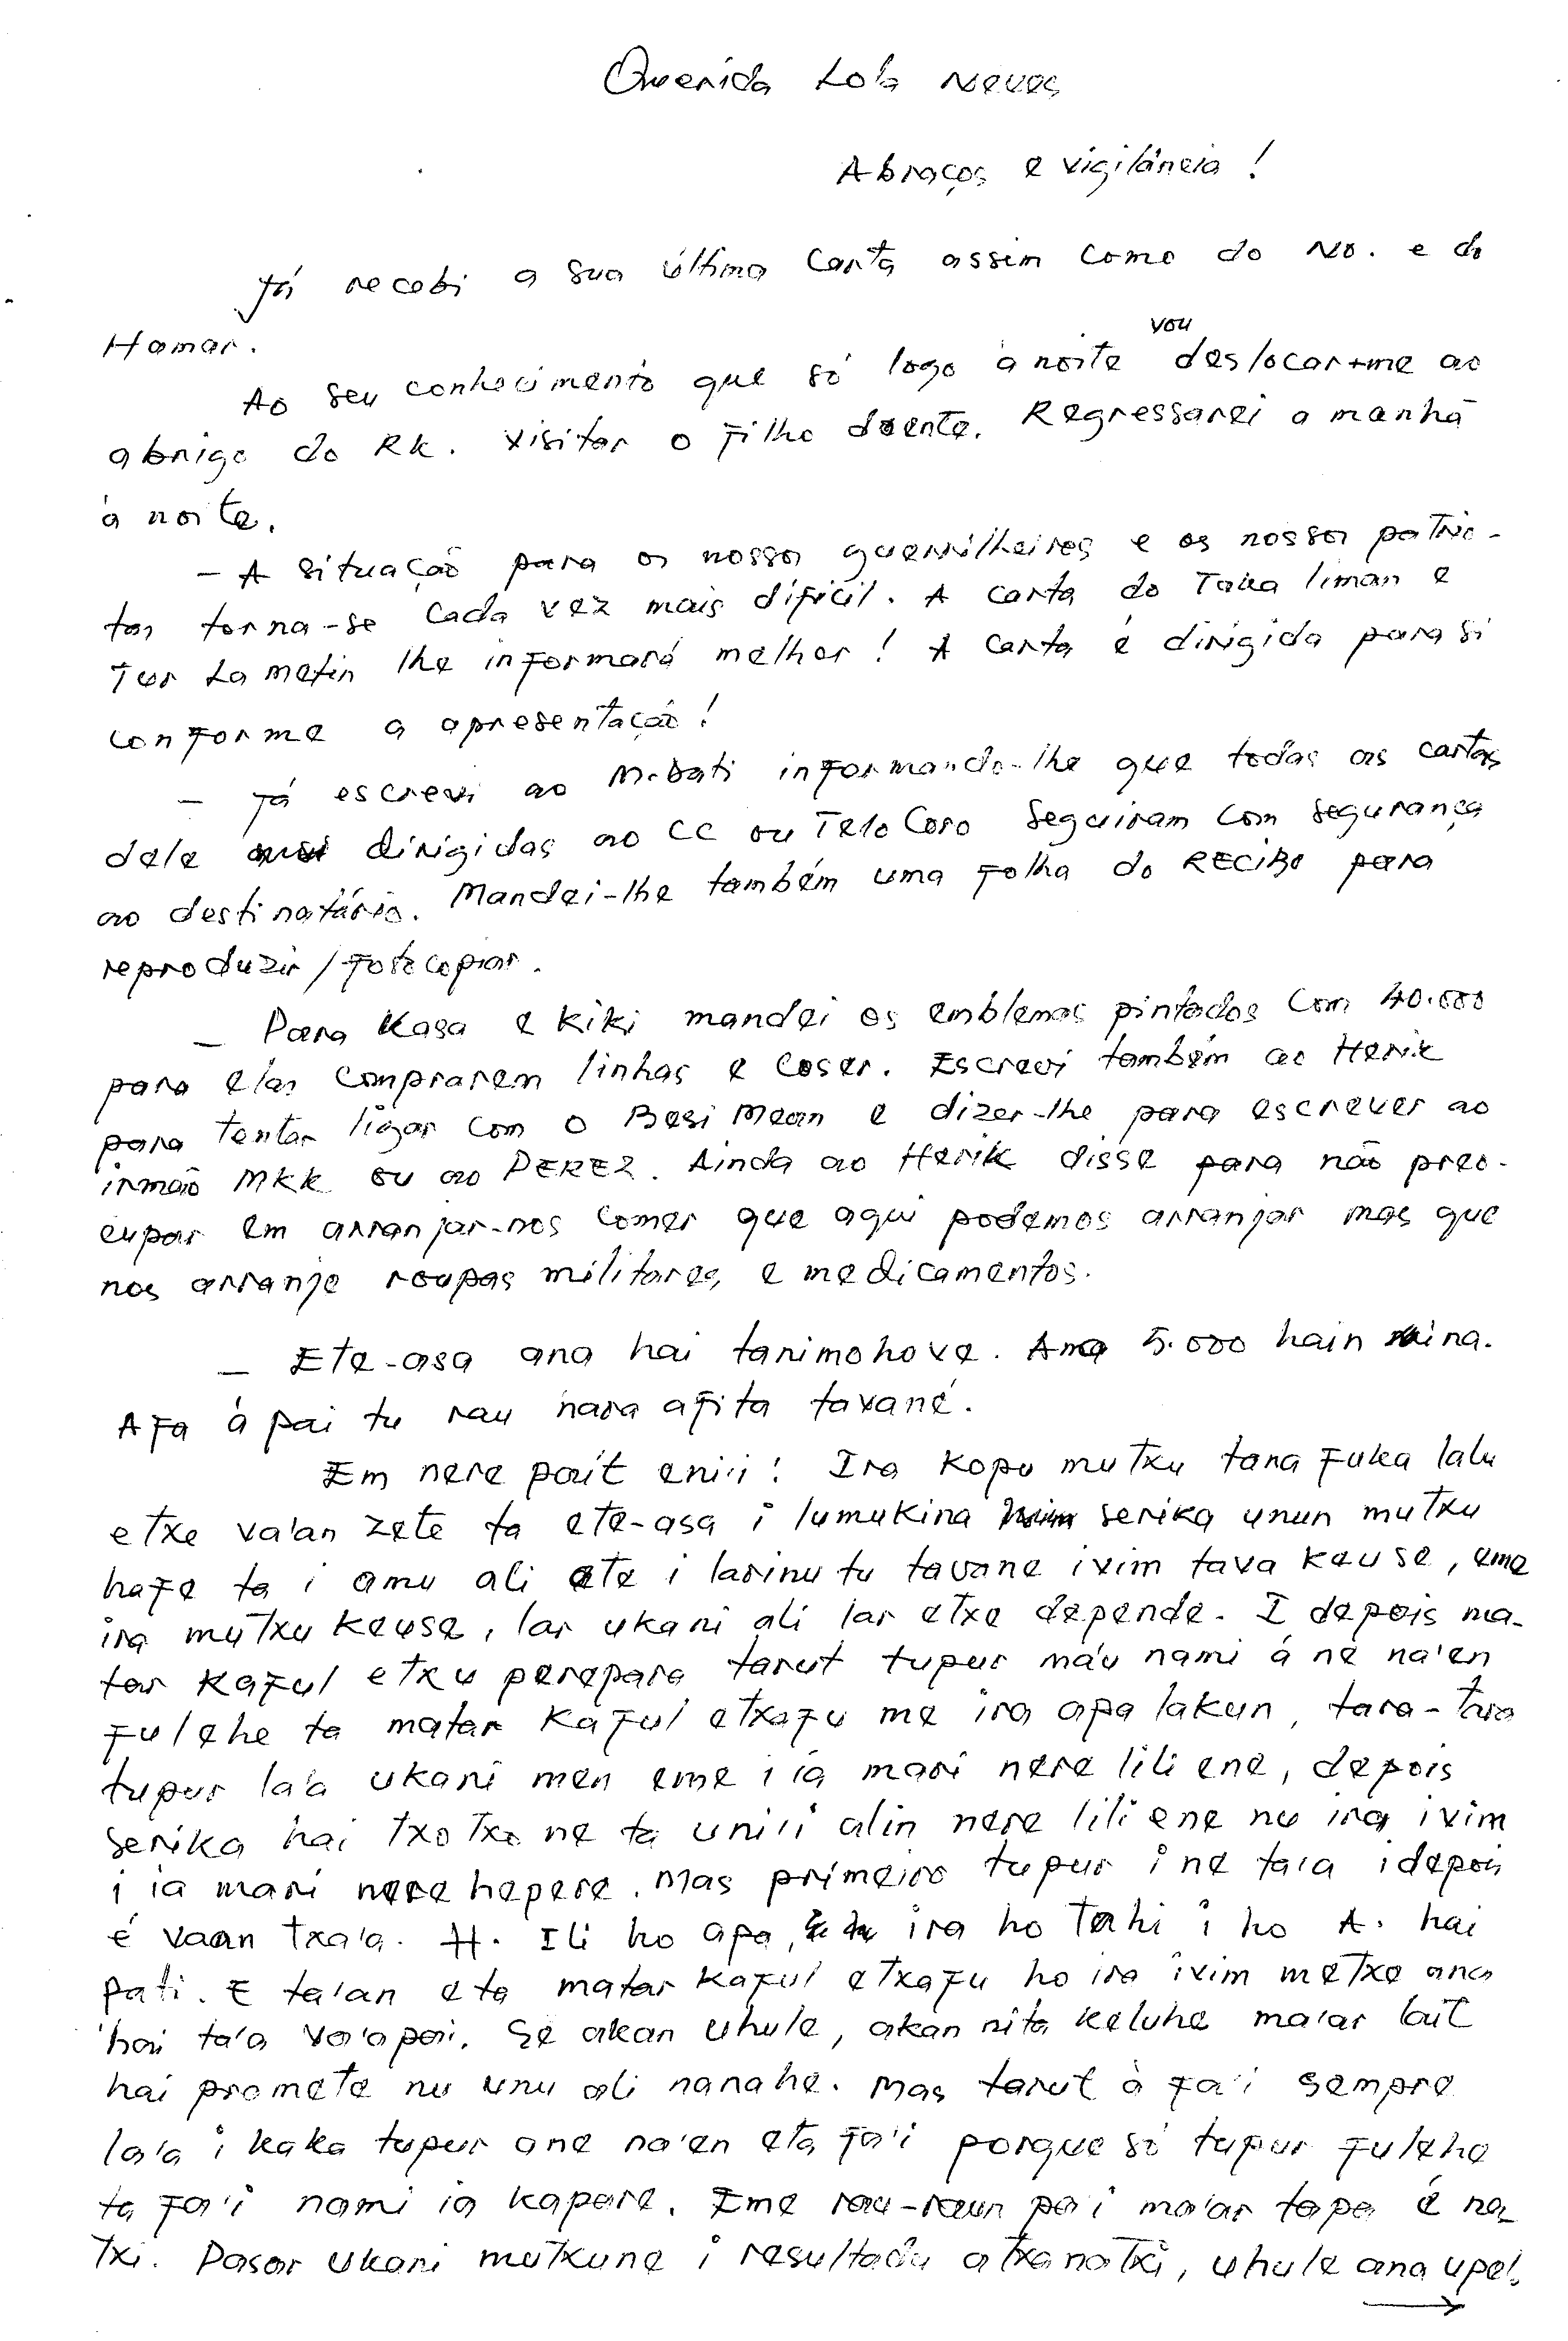 Querida Lola Neves
Abraços e vigilância!
Já recebi a sua última carta assim como do No. e do
Hamar.
Ao seu conhecimento que só logo à noite vou deslocar-me ao
abrigo do RK. visitar o filho doente. Regressarei a manhã
à noite.
– A situação para os nossos guerrilheiros e os nossos patrio-
tas torna-se cada vez mais difícil. A carta do Taka liman e
Tur La metin lhe informará melhor! A carta é dirigida para si
conforme a apresentação!
– Já escrevi ao M.bati informando-lhe que todas as cartas
dele dirigidas ao CC ou Telo Coro seguiram com segurança
ao destinatário. Mandei-lhe também uma folha do RECIBO para
reproduzir/fotocopiar.
– Para Kasa e Kiki mandei os emblemas pintados com 40.000
para elas comprarem linhas e coser. Escrevi também ao Herik
para tentar ligar com o Besi Mean e dizer-lhe para escrever ao
irmão MKK ou ao PEREZ. Ainda ao Herik disse para não preo-
cupar em arranjar-nos comer que aqui podemos arranjar mas que
nos arranje roupas militares, e medicamentos.
– Ete-asa ana hai tanimohove. Ama 5.000 hain mina.
Afa á pai tu rau nara afita tavané.
Em nere pait eni'i! Ira kopu mutxu tana fuka lalu
etxe va'an zete ta ete-asa i lumukina serika unun mutxu
hafe ta i amu ali ete i larinu tu tavane ivim tava keuse, eme
ira mutxu keuse, lar ukani ali lar etxe depende. I depois ma-
tar kaful etxu perepara tarut tupur ma'u nami á ne na'en
fulehe ta matar kaful etxafu me ira apa lakun, tara-tara
tupur la'a ukani men eme i ia mari nere lili ene, depois
serika hai txotxo ne ta uni'i alin nere lili ene nu ira ivim
i ia mari nere hepere. Mas primeiro tupur i ne ta'a i depois
é vaan txa'a. H. Ili ho apa, ira ho tahi i ho A. hai
pati. E ta'an eta matar kaful etxafu ho ira ivim metxe ana
hai ta'a va'apai. Se akan uhule, akan nita keluhe ma'ar lait
hai promete nu unu ali nanahe. Mas tarut à fa'i sempre
la'a i kaka tupur ane na'en eta fa'i porque só tupur fulehe
ta fa'i nami ia kapare. Eme rau-raun pa'i ma'ar tapa é na-
txi. Pasar ukani mutxune i resultadu atxanatxi, uhule ana upel.